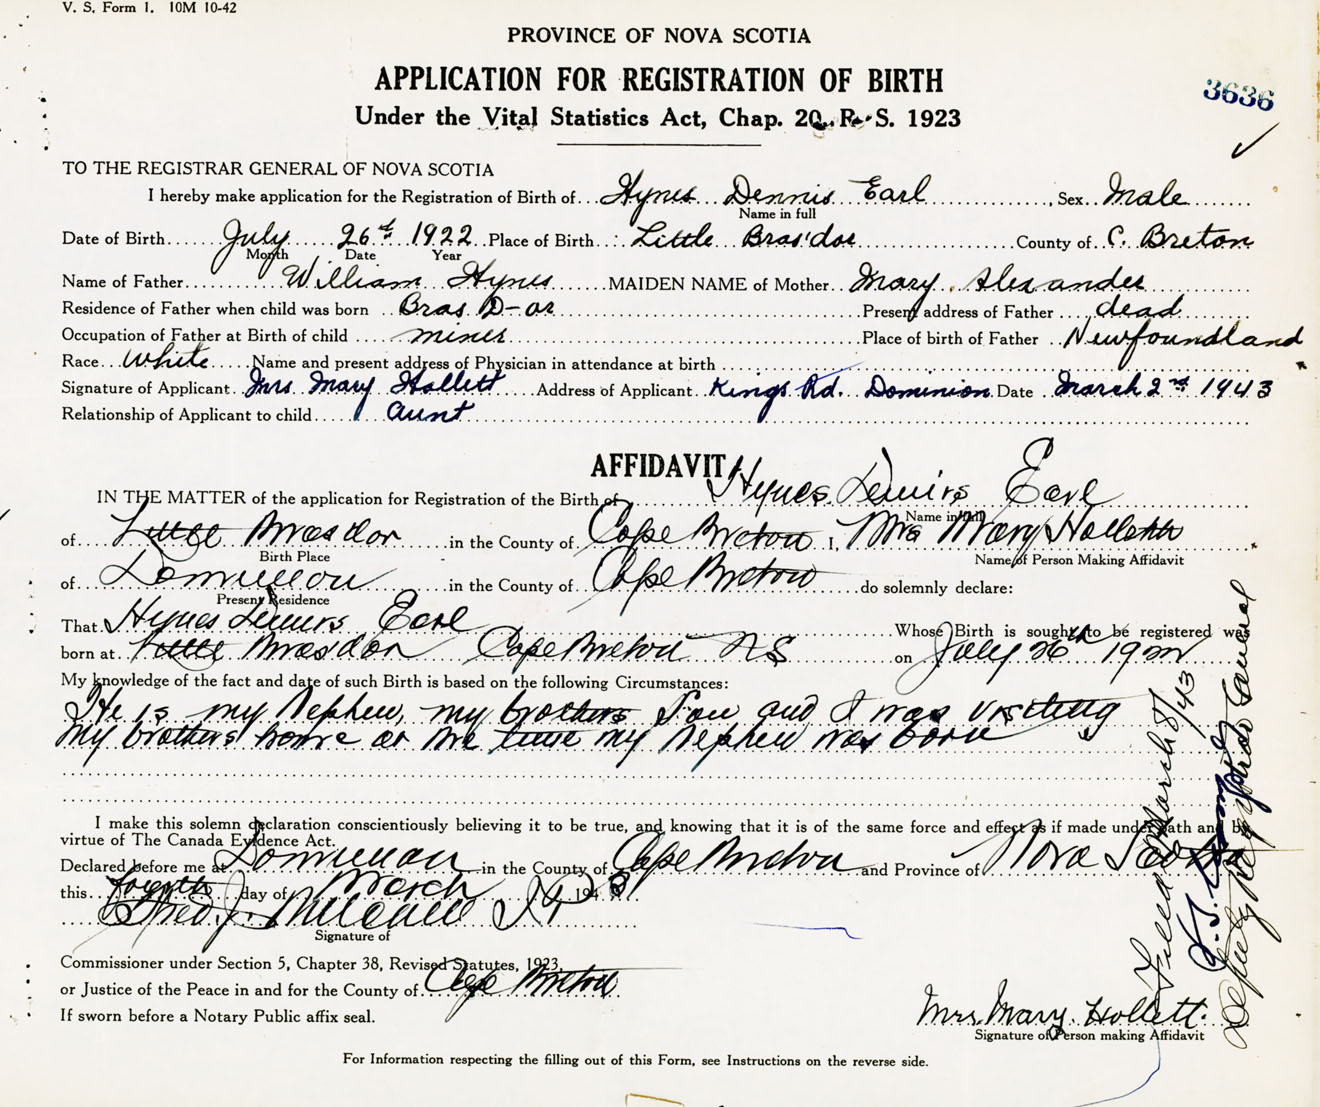 V. S. Form 1. 10M 10-42
PROVINCE OF NOVA SCOTIA
APPLICATION FOR REGISTRATION OF BIRTH
3636
Under the Vital Statistics Act, Chap. 20, R. S. 1923
TO THE REGISTRAR GENERAL OF NOVA SCOTIA
I hereby make application for the Registration of Birth of Hynes Dennis Earl, Sex Male
Name in full
Date of Birth July 26th 1922 Place of Birth Little Bras'dor County of C. Breton
Month Date Year
Name of Father William Hynes MAIDEN NAME of Mother Mary Alexander
Residence of Father when child was born Bras D-or Present address of Father dead
Occupation of Father at Birth of child miner Place of birth of Father Newfoundland
Race White Name and present address of Physician in attendance at birth
Signature of Applicant Mrs Mary Hollett Address of Applicant Kings Rd. Dominion Date March 2nd 1943
Relationship of Applicant to child aunt
AFFIDAVIT
IN THE MATTER of the application for Registration of the Birth of Hynes Dennis Earl
Name in full
of Little Brasdor in the County of Cape Breton I, Mrs Mary Hollett
Birth Place Name of Person Making Affidavit
of Dominion in the County of Cape Breton do solemnly declare:
Present Residence
That Hynes Dennis Earl Whose Birth is sought to be registered was
born at Little Brasdor Cape Breton NS on July 26th 1922
My knowledge of the fact and date of such Birth is based on the following Circumstances:
He is my Nephew, my brothers Son and I was visiting
my brothers home at the time my Nephew was born
I make this solemn declaration conscientiously believing it to be true, and knowing that it is of the same force and effect as if made under oath and by
virtue of The Canada Evidence Act.
Declared before me at Dominion in the County of Cape Breton and Province of Nova Scotia
this fourth day of March 1943
Fred J. JP
Signature of
Commissioner under Section 5, Chapter 38, Revised Statutes, 1923,
or Justice of the Peace in and for the County of Cape Breton
If sworn before a Notary Public affix seal.
Mrs. Mary Hollett.
Signature of Person making Affidavit
For Information respecting the filling out of this Form, see Instructions on the reverse side.
Filed March 8/43
Deputy Registrar General